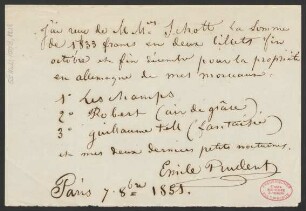 J'ai reçu de M Mrs Schott la somme
de 1833 francs en deux billets fin
octobre et fin décembre pour la propriété
en allemagne de mes morceaux.
1° Les champs
2° Robert (air de grâce)
3° guillaume tell (fantaisie)
et mes deux derniers petits nocturnes.
Emile Prudent
Paris 7. 8bre 1851.